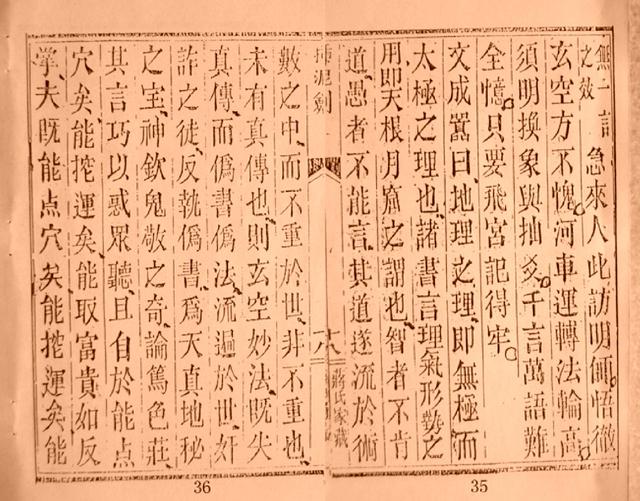 無一言
之效 急來人此訪明師悟徹
玄空方不愧河車運轉法輪高
須明換象與抽爻千言萬語難
全憶只要飛宮記得牢
文成嵩曰地理之理即無極而
太極之理也諸書言理氣形勢之
用即天根月窟之謂也智者不肯
道愚者不能言其道遂流於術
插泥劍 十八 蔣氏家藏
數之中而不重於世非不重也
未有真傳也則玄空妙法既失
真傳而僞書僞法流遍於世奸
詐之徒反執僞書爲天真地秘
之宝神欽鬼敬之奇論篤色莊
其言巧以惑眾聽且自於能点
穴矣能挖運矣能取富貴如反
掌夫既能点穴矣能挖運矣能
36
35